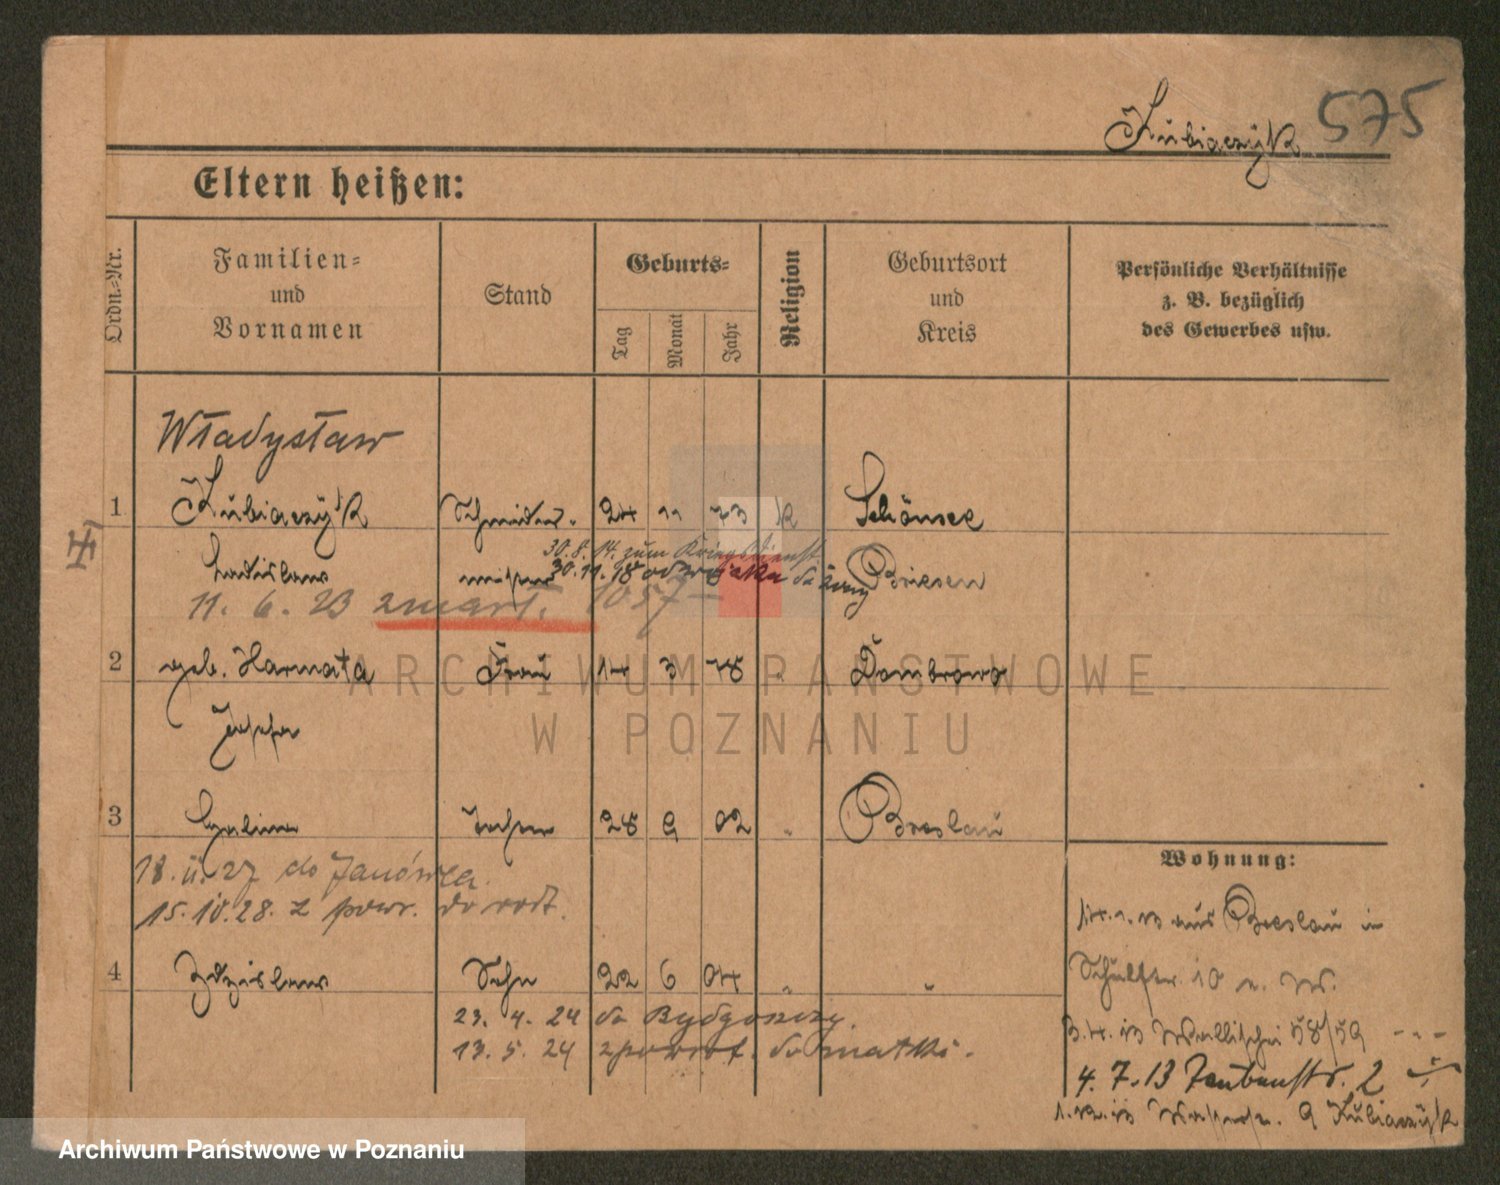 Kubiaczyk 575
Eltern heißen:
Ordn.-Nr.
Familien-
und
Vornamen
Stand
Geburts-
Tag
Monat
Jahr
Religion
Geburtsort
und
Kreis
Persönliche Verhältnisse
z. B. bezüglich
des Gewerbes usw.
Władysław
1 Kubiaczyk Schneider- 24 11 73 k Schönsee
Ladislaus meister Briesen
30.8.14. zum Kriegsdienst
30.11.18 od wojska do żony
11. 6. 23 zmarł. 1057
2 geb. Harmata Frau 14 3 78 Dombrowo
Josefa
3 Halina Tochter 28 9 02 " Breslau
18.11.27 do Janówca.
15.10.28. z powr. do rodz.
4 Zdzislaus Sohn 22 6 04 " "
23. 4. 24 do Bydgoszczy.
13. 5. 24 z powrot. do matki.
Wohnung:
13 aus Breslau in
Schulstr. 10
Wallischei 58/59
4. 7. 13 Taubenstr. 2
9 Kubiaczyk
ARCHIWUM PAŃSTWOWE
W POZNANIU
Archiwum Państwowe w Poznaniu